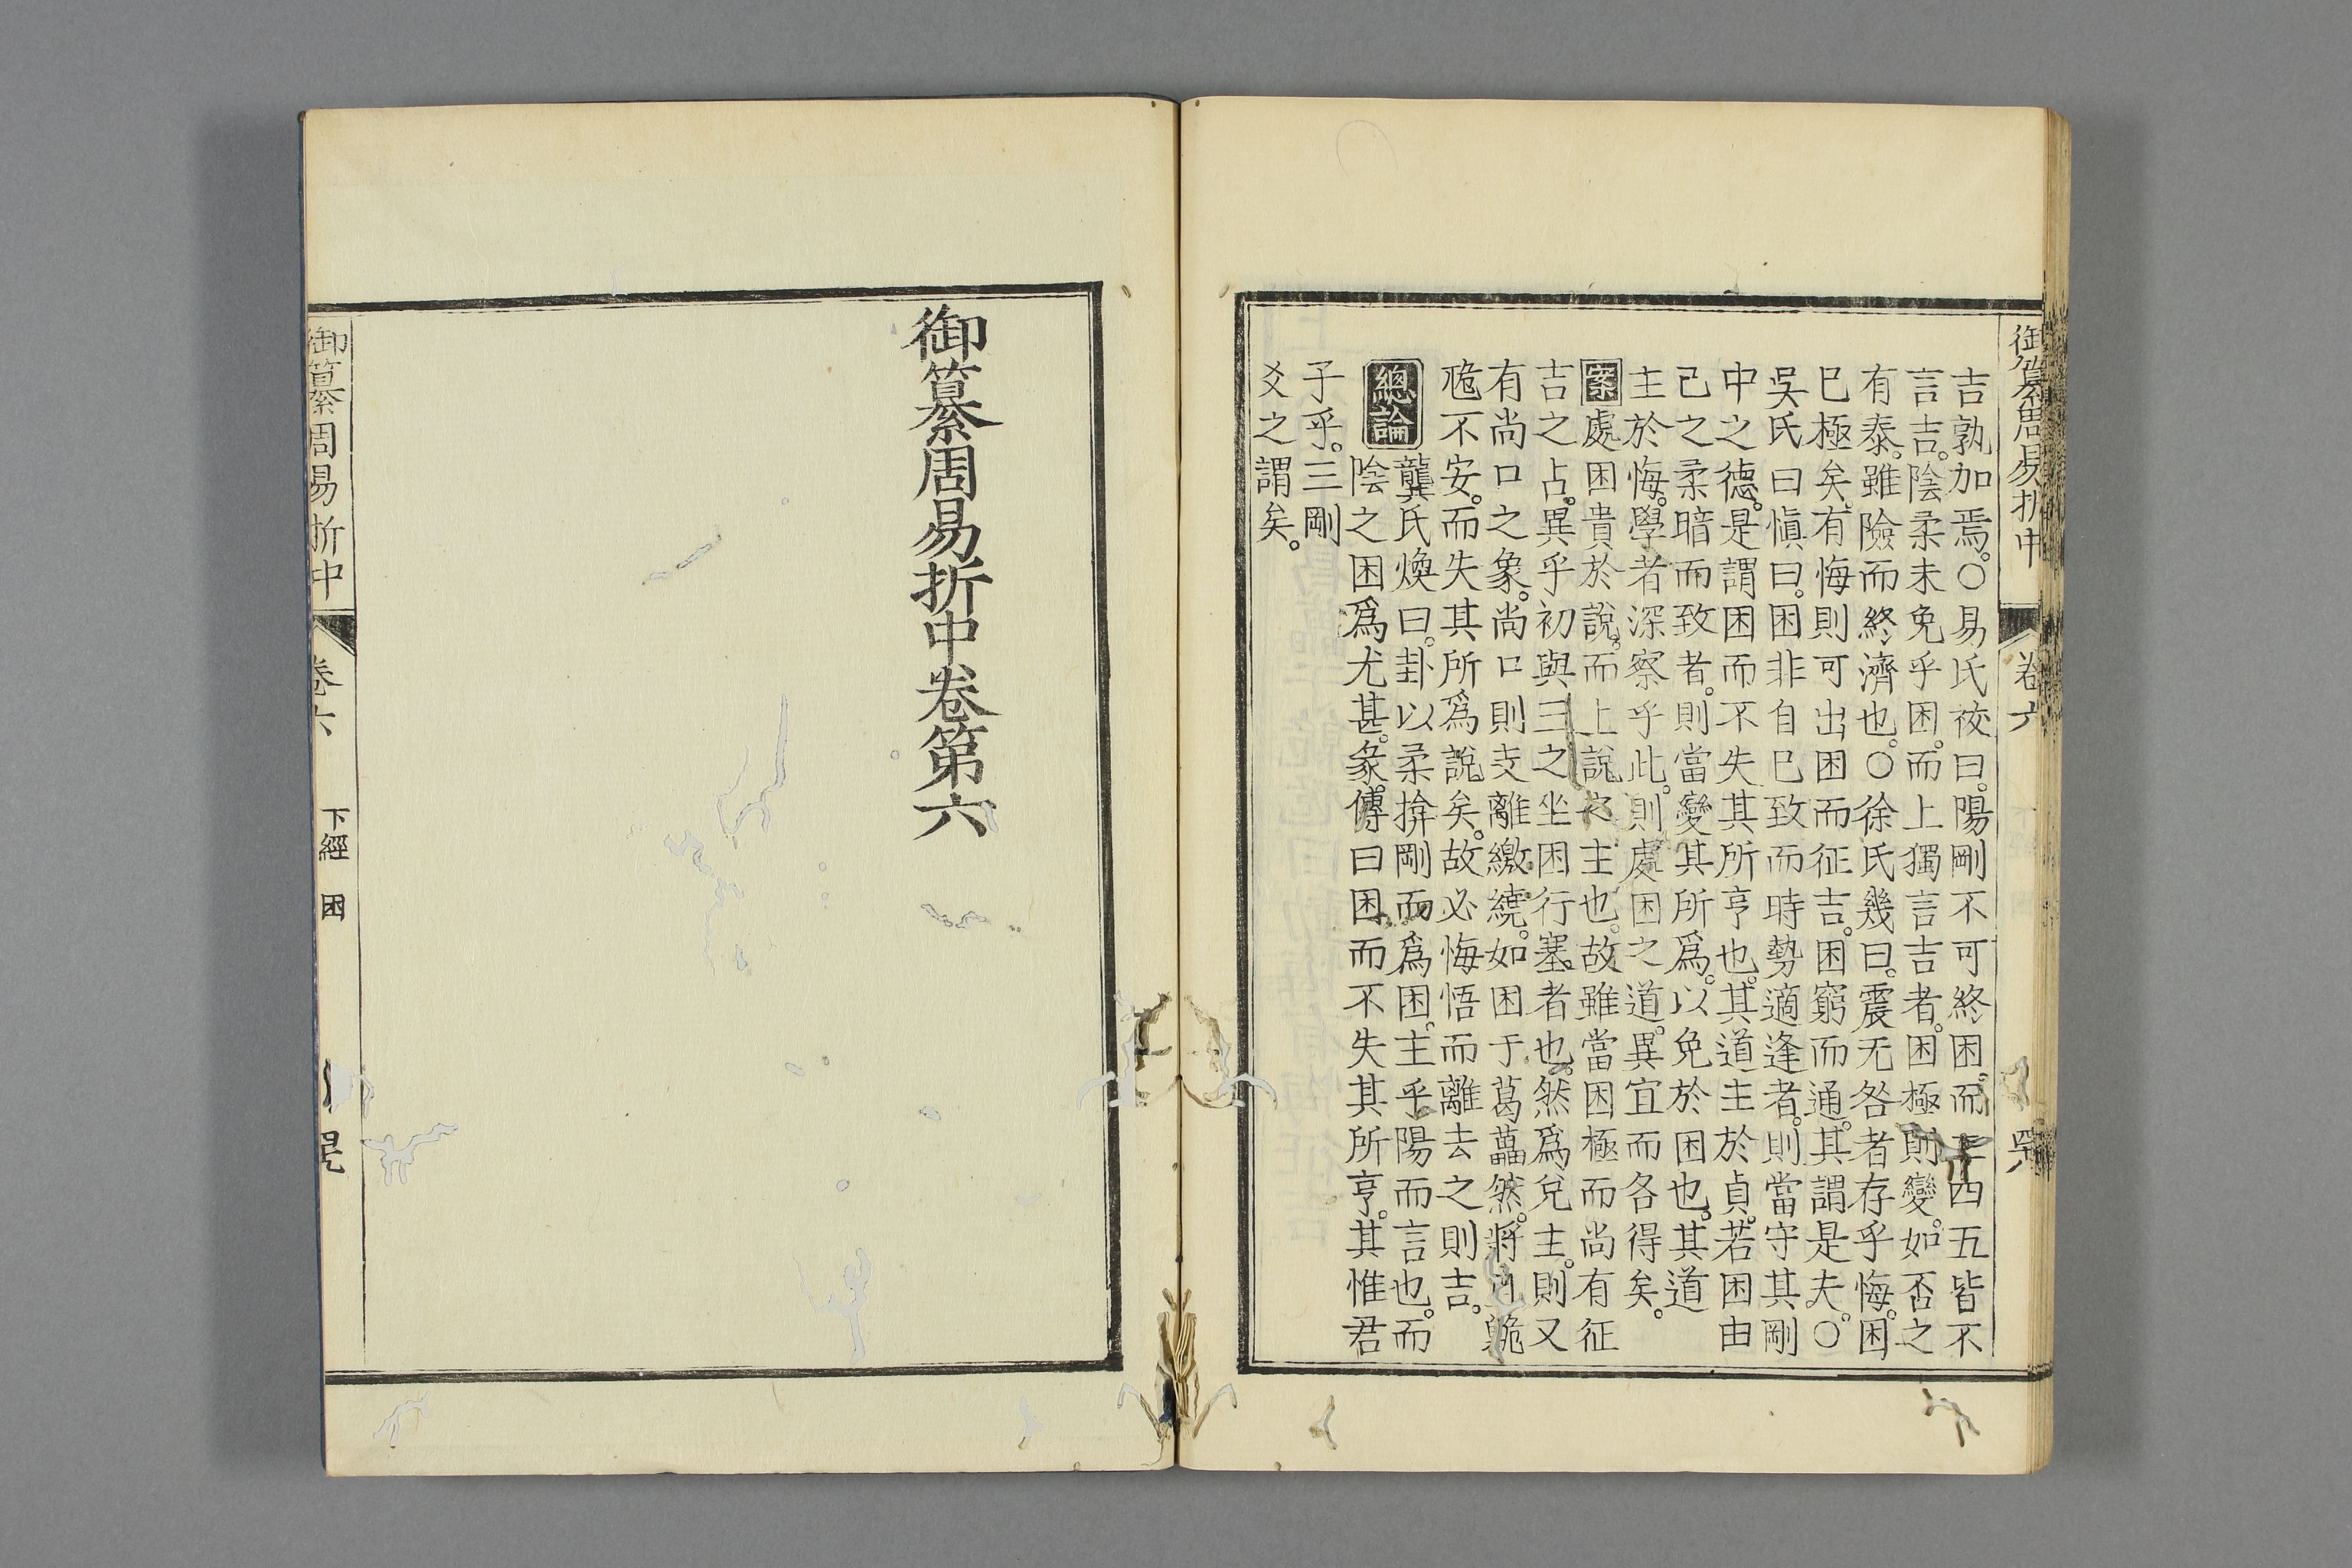 御纂周易折中 卷六
吉孰加焉。○易氏祓曰。陽剛不可終困。而二四五皆不
言吉。陰柔未免乎困。而上獨言吉者。困極則變。如否之
有泰。雖險而終濟也。○徐氏幾曰。震无咎者存乎悔。困
巳極矣。有悔則可出困而征吉。困窮而通。其謂是夫。○
吳氏曰愼曰。困非自巳致而時勢適逢者。則當守其剛
中之德。是謂困而不失其所亨也。其道主於貞。若困由
己之柔暗而致者。則當變其所爲。以免於困也。其道
主於悔。學者深察乎此。則處困之道。異宜而各得矣。
案處困貴於說。而上說之主也。故雖當困極而尚有征
吉之占。異乎初與三之坐困行塞者也。然爲兌主。則又
有尚口之象。尚口則支離繳繞。如困于葛藟然。將且臲
卼不安。而失其所爲說矣。故必悔悟而離去之則吉。
總論 龔氏煥曰。卦以柔揜剛而爲困。主乎陽而言也。而
陰之困爲尤甚。彖傳曰困而不失其所亨。其惟君
子乎。三剛
爻之謂矣。
御纂周易折中卷第六
御纂周易折中 卷六 下經 困